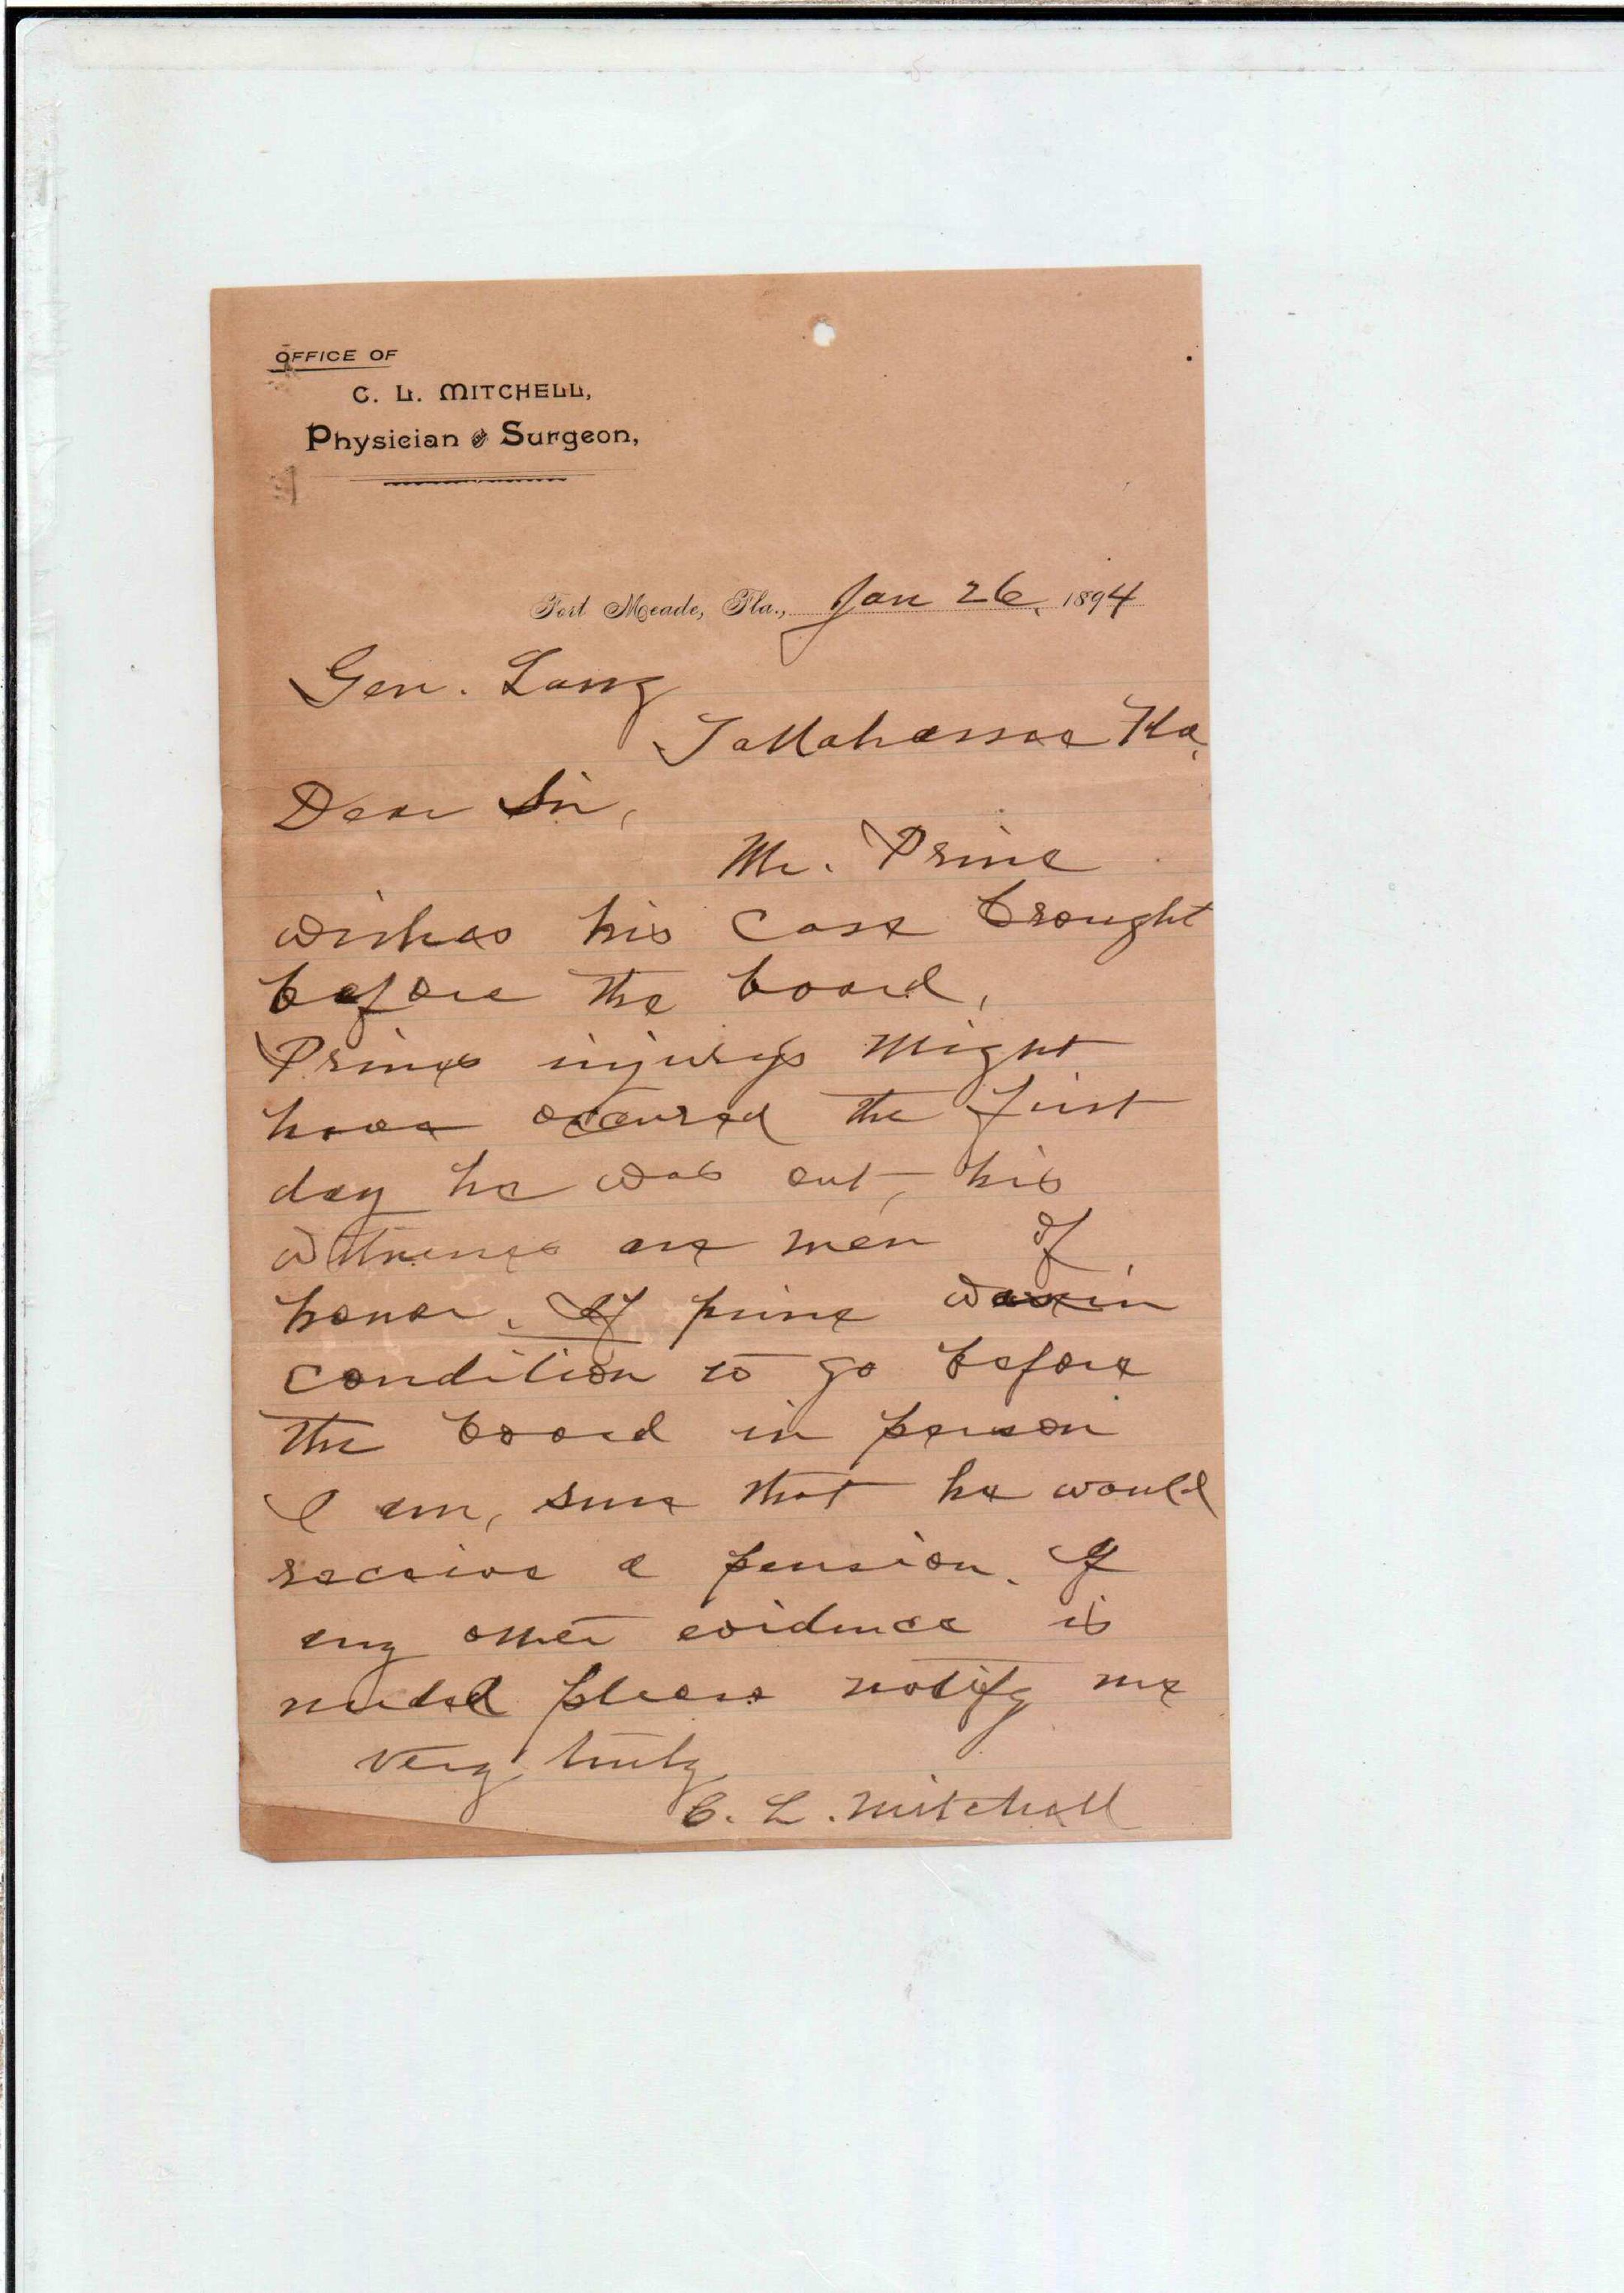 OFFICE OF
C. L. MITCHELL,
Physician & Surgeon,
Fort Meade, Fla., Jan 26, 1894
Gen. Lang
Tallahassee Fla,
Dear Sir,
Mr. Prine
wishes his case brought
before the board,
Prines injurys might
have occured the first
day he was out, his
Witnesses are men of
honor. If prine was in
condition to go before
the board in person
I am, sure that he would
receive a pension. If
any other evidence is
needed please notify me
very truly
C. L. Mitchell